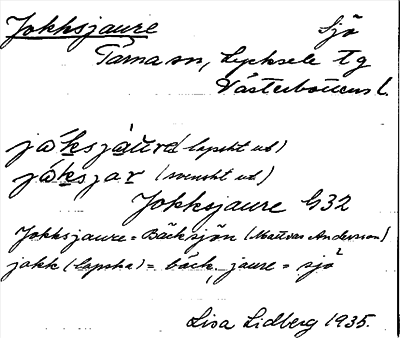 Jokksjaure Sjö
Tärna sn, Lycksele tg
Västerbottens l.
(lapskt ut)
(svenskt ut)
Jokksjaure G32
Jokksjaure = Bäcksjön (Mattias Andersson)
jokk (lapska) = bäck, jaure = sjö
Lisa Lidberg 1935.